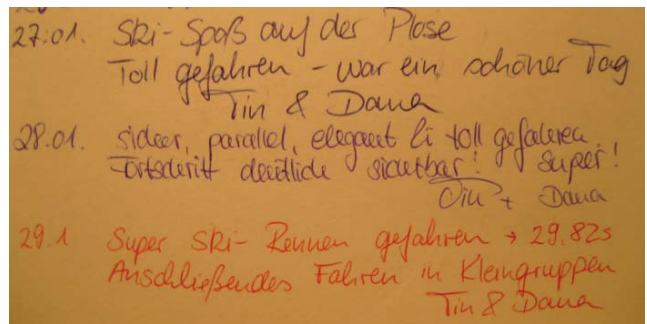 27.01. Ski-Spaß auf der Plose
Toll gefahren - war ein schöner Tag
Tin & Dana
28.01. sicher, parallel, elegant & toll gefahren.
Fortschritt deutlich sichtbar! Super!
Tin + Dana
29.1 Super Ski-Rennen gefahren → 29.82s
Anschließendes Fahren in Kleingruppen
Tin & Dana